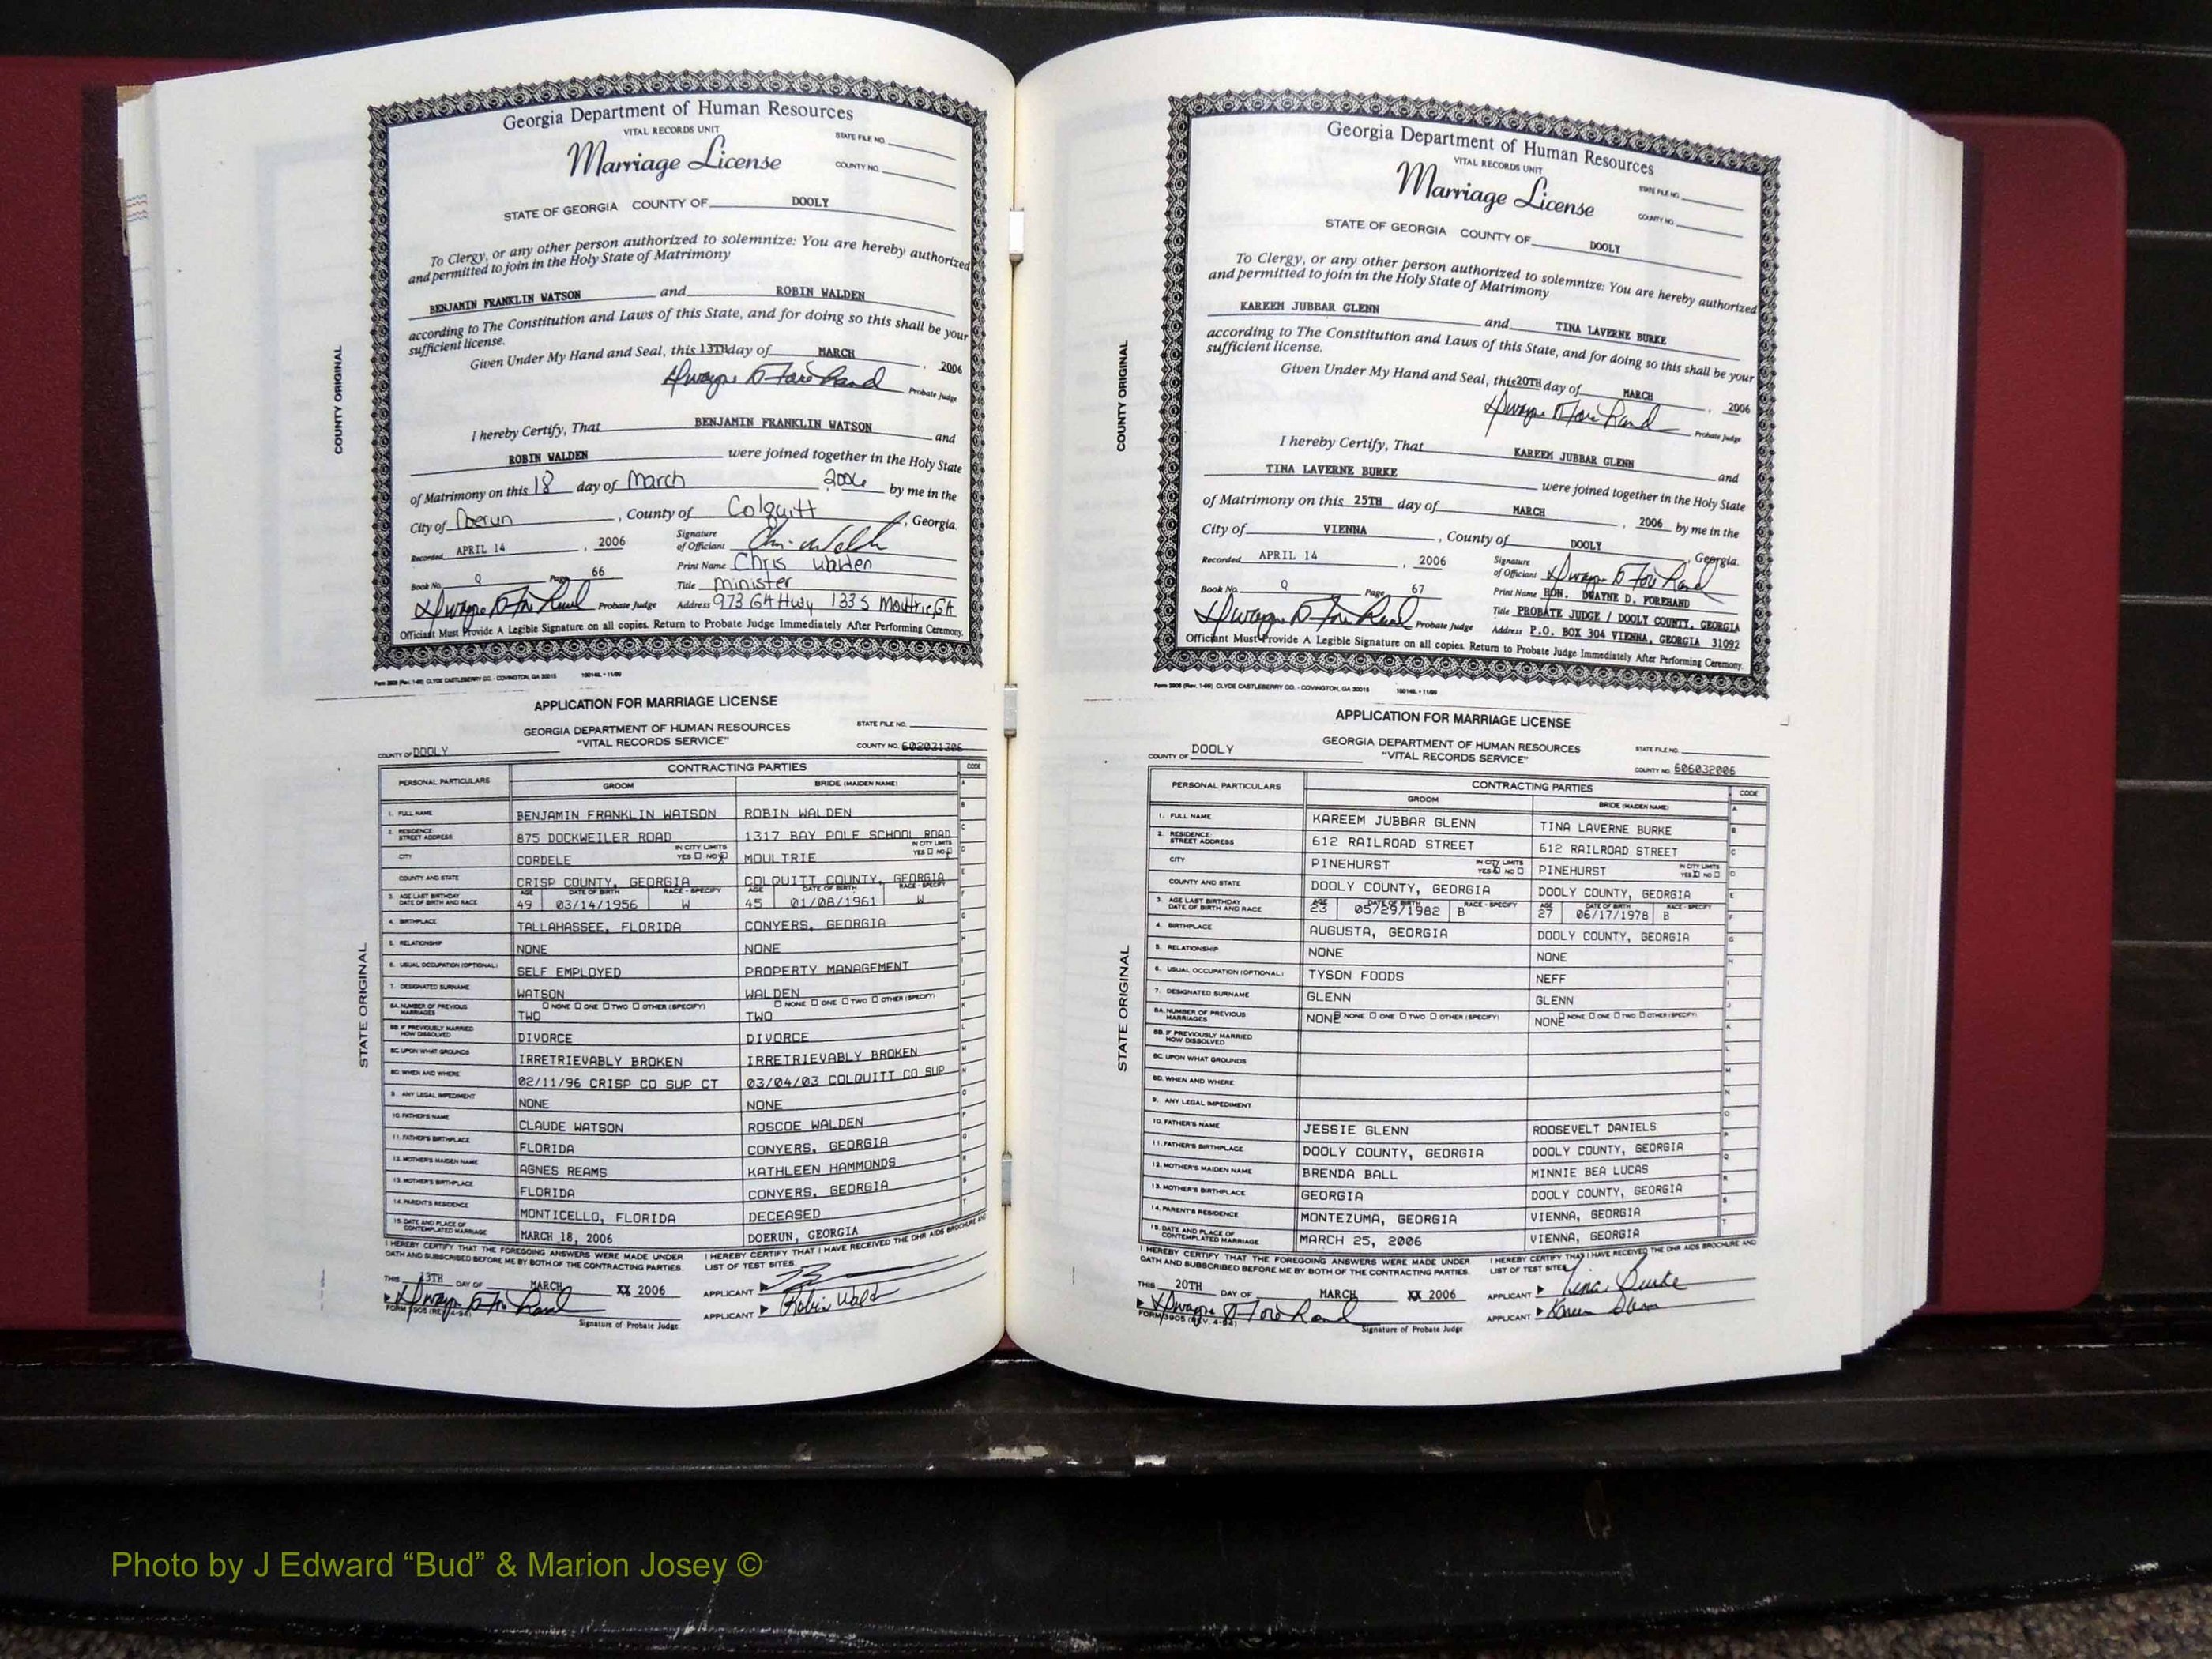 Georgia Department of Human Resources
VITAL RECORDS UNIT
STATE FILE NO.
Marriage License
COUNTY NO.
STATE OF GEORGIA COUNTY OF DOOLY
To Clergy, or any other person authorized to solemnize: You are hereby authorized
and permitted to join in the Holy State of Matrimony
BENJAMIN FRANKLIN WATSON and ROBIN WALDEN
according to The Constitution and Laws of this State, and for doing so this shall be your
sufficient license.
Given Under My Hand and Seal, this 13TH day of MARCH, 2006
Probate Judge
COUNTY ORIGINAL
I hereby Certify, That BENJAMIN FRANKLIN WATSON and
ROBIN WALDEN were joined together in the Holy State
of Matrimony on this 18 day of March 2006 by me in the
City of Doerun, County of Colquitt, Georgia.
Recorded APRIL 14, 2006
Signature of Officiant
Print Name Chris Walden
Book No. Q Page 66
Title minister
Probate Judge Address 973 GA Hwy 133 S Moultrie GA
Officiant Must Provide A Legible Signature on all copies. Return to Probate Judge Immediately After Performing Ceremony.
CLYDE CASTLEBERRY CO. - COVINGTON, GA 30015
APPLICATION FOR MARRIAGE LICENSE
GEORGIA DEPARTMENT OF HUMAN RESOURCES
"VITAL RECORDS SERVICE"
STATE FILE NO.
COUNTY OF DOOLY
COUNTY NO. 602031306
PERSONAL PARTICULARS CONTRACTING PARTIES CODE
GROOM BRIDE (MAIDEN NAME)
1. FULL NAME BENJAMIN FRANKLIN WATSON ROBIN WALDEN
2. RESIDENCE: STREET ADDRESS 875 DOCKWEILER ROAD 1317 BAY POLE SCHOOL ROAD
CITY CORDELE IN CITY LIMITS YES NO MOULTRIE IN CITY LIMITS YES NO
COUNTY AND STATE CRISP COUNTY, GEORGIA COLQUITT COUNTY, GEORGIA
3. AGE LAST BIRTHDAY DATE OF BIRTH AND RACE AGE 49 DATE OF BIRTH 03/14/1956 RACE - SPECIFY W AGE 45 DATE OF BIRTH 01/08/1961 RACE - SPECIFY W
4. BIRTHPLACE TALLAHASSEE, FLORIDA CONYERS, GEORGIA
5. RELATIONSHIP NONE NONE
6. USUAL OCCUPATION (OPTIONAL) SELF EMPLOYED PROPERTY MANAGEMENT
7. DESIGNATED SURNAME WATSON WALDEN
8A. NUMBER OF PREVIOUS MARRIAGES TWO NONE ONE TWO OTHER (SPECIFY) TWO NONE ONE TWO OTHER (SPECIFY)
8B. IF PREVIOUSLY MARRIED HOW DISSOLVED DIVORCE DIVORCE
8C. UPON WHAT GROUNDS IRRETRIEVABLY BROKEN IRRETRIEVABLY BROKEN
8D. WHEN AND WHERE 02/11/96 CRISP CO SUP CT 03/04/03 COLQUITT CO SUP
9. ANY LEGAL IMPEDIMENT NONE NONE
10. FATHER'S NAME CLAUDE WATSON ROSCOE WALDEN
11. FATHER'S BIRTHPLACE FLORIDA CONYERS, GEORGIA
12. MOTHER'S MAIDEN NAME AGNES REAMS KATHLEEN HAMMONDS
13. MOTHER'S BIRTHPLACE FLORIDA CONYERS, GEORGIA
14. PARENT'S RESIDENCE MONTICELLO, FLORIDA DECEASED
15. DATE AND PLACE OF CONTEMPLATED MARRIAGE MARCH 18, 2006 DOERUN, GEORGIA
STATE ORIGINAL
I HEREBY CERTIFY THAT THE FOREGOING ANSWERS WERE MADE UNDER
OATH AND SUBSCRIBED BEFORE ME BY BOTH OF THE CONTRACTING PARTIES.
I HEREBY CERTIFY THAT I HAVE RECEIVED THE DHR AIDS BROCHURE AND
LIST OF TEST SITES.
THIS 13TH DAY OF MARCH XX 2006 APPLICANT
APPLICANT
FORM 3905 (REV. 4-94)
Signature of Probate Judge
Georgia Department of Human Resources
VITAL RECORDS UNIT
STATE FILE NO.
Marriage License
COUNTY NO.
STATE OF GEORGIA COUNTY OF DOOLY
To Clergy, or any other person authorized to solemnize: You are hereby authorized
and permitted to join in the Holy State of Matrimony
KAREEM JUBBAR GLENN and TINA LAVERNE BURKE
according to The Constitution and Laws of this State, and for doing so this shall be your
sufficient license.
Given Under My Hand and Seal, this 20TH day of MARCH, 2006
Probate Judge
COUNTY ORIGINAL
I hereby Certify, That KAREEM JUBBAR GLENN and
TINA LAVERNE BURKE were joined together in the Holy State
of Matrimony on this 25TH day of MARCH, 2006 by me in the
City of VIENNA, County of DOOLY, Georgia.
Recorded APRIL 14, 2006
Signature of Officiant
Print Name HON. DWAYNE D. FOREHAND
Book No. Q Page 67
Title PROBATE JUDGE / DOOLY COUNTY, GEORGIA
Probate Judge Address P.O. BOX 304 VIENNA, GEORGIA 31092
Officiant Must Provide A Legible Signature on all copies. Return to Probate Judge Immediately After Performing Ceremony.
CLYDE CASTLEBERRY CO. - COVINGTON, GA 30015
APPLICATION FOR MARRIAGE LICENSE
GEORGIA DEPARTMENT OF HUMAN RESOURCES
"VITAL RECORDS SERVICE"
STATE FILE NO.
COUNTY OF DOOLY
COUNTY NO. 606032006
PERSONAL PARTICULARS CONTRACTING PARTIES CODE
GROOM BRIDE (MAIDEN NAME)
1. FULL NAME KAREEM JUBBAR GLENN TINA LAVERNE BURKE
2. RESIDENCE: STREET ADDRESS 612 RAILROAD STREET 612 RAILROAD STREET
CITY PINEHURST IN CITY LIMITS YES NO PINEHURST IN CITY LIMITS YES NO
COUNTY AND STATE DOOLY COUNTY, GEORGIA DOOLY COUNTY, GEORGIA
3. AGE LAST BIRTHDAY DATE OF BIRTH AND RACE AGE 23 DATE OF BIRTH 05/29/1982 RACE - SPECIFY B AGE 27 DATE OF BIRTH 06/17/1978 RACE - SPECIFY B
4. BIRTHPLACE AUGUSTA, GEORGIA DOOLY COUNTY, GEORGIA
5. RELATIONSHIP NONE NONE
6. USUAL OCCUPATION (OPTIONAL) TYSON FOODS NEFF
7. DESIGNATED SURNAME GLENN GLENN
8A. NUMBER OF PREVIOUS MARRIAGES NONE NONE ONE TWO OTHER (SPECIFY) NONE NONE ONE TWO OTHER (SPECIFY)
8B. IF PREVIOUSLY MARRIED HOW DISSOLVED
8C. UPON WHAT GROUNDS
8D. WHEN AND WHERE
9. ANY LEGAL IMPEDIMENT
10. FATHER'S NAME JESSIE GLENN ROOSEVELT DANIELS
11. FATHER'S BIRTHPLACE DOOLY COUNTY, GEORGIA DOOLY COUNTY, GEORGIA
12. MOTHER'S MAIDEN NAME BRENDA BALL MINNIE BEA LUCAS
13. MOTHER'S BIRTHPLACE GEORGIA DOOLY COUNTY, GEORGIA
14. PARENT'S RESIDENCE MONTEZUMA, GEORGIA VIENNA, GEORGIA
15. DATE AND PLACE OF CONTEMPLATED MARRIAGE MARCH 25, 2006 VIENNA, GEORGIA
STATE ORIGINAL
I HEREBY CERTIFY THAT THE FOREGOING ANSWERS WERE MADE UNDER
OATH AND SUBSCRIBED BEFORE ME BY BOTH OF THE CONTRACTING PARTIES.
I HEREBY CERTIFY THAT I HAVE RECEIVED THE DHR AIDS BROCHURE AND
LIST OF TEST SITES.
THIS 20TH DAY OF MARCH XX 2006 APPLICANT Tina Burke
APPLICANT
FORM 3905 (REV. 4-94)
Signature of Probate Judge
Photo by J Edward “Bud” & Marion Josey ©